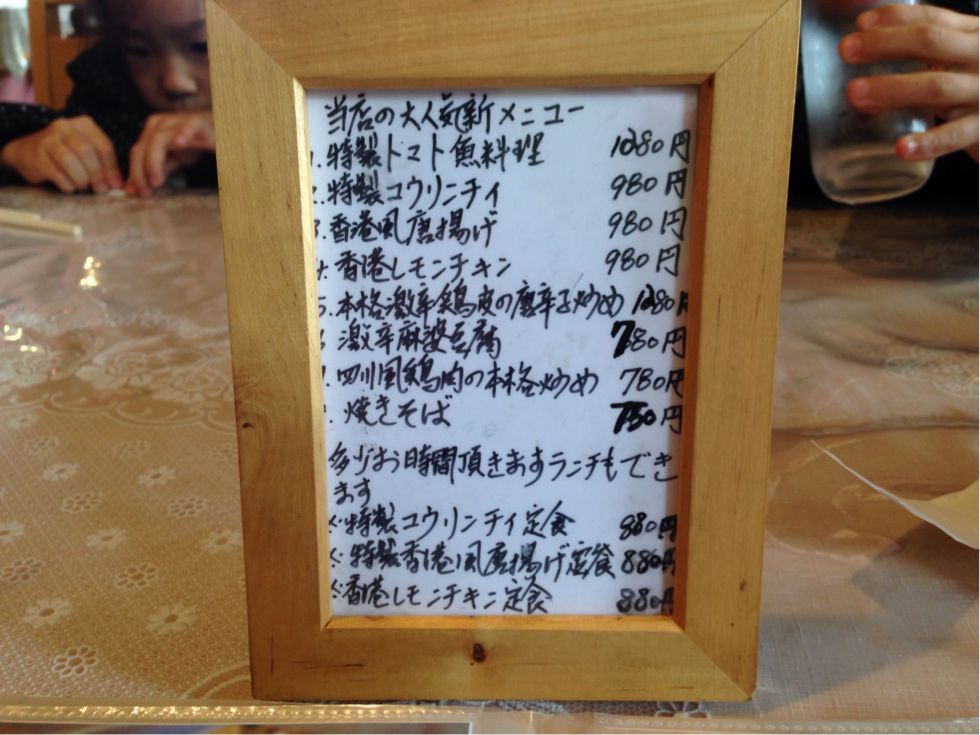 当店の大人気新メニュー
1.特製トマト魚料理 1280円
2.特製コウリンチィ 980円
3.香港風唐揚げ 980円
4.香港レモンチキン 980円
5.本格激辛鶏皮の唐辛子炒め 1280円
6 激辛麻婆豆腐 780円
7.四川風鶏肉の本格炒め 780円
焼きそば 730円
多少お時間頂きますランチもでき
ます
※特製コウリンチィ定食 880円
※特製香港風唐揚げ定食 880円
※香港レモンチキン定食 880円